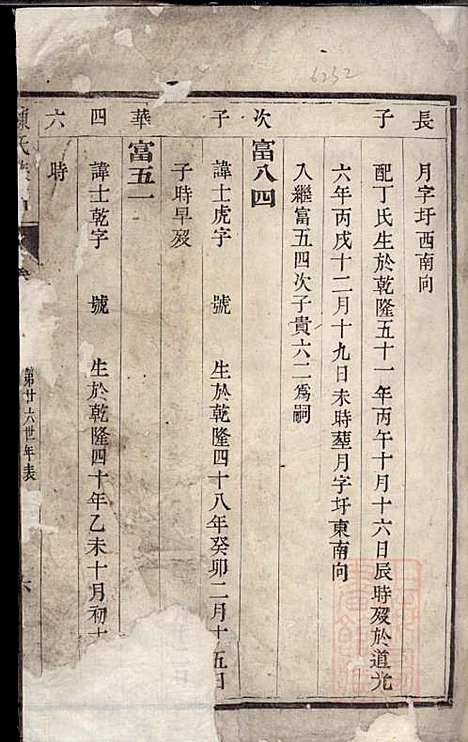 6252
長 子 次 子 華 四 六
月字圩西南向
配丁氏生於乾隆五十一年丙午十月十六日辰時歿於道光
六年丙戌十二月十九日未時塟月字圩東南向
入繼富五四次子貴六二爲嗣
富八四
諱士虎字 號 生於乾隆四十八年癸卯二月十五日
子時早歿
富五一
諱士乾字 號 生於乾隆四十年乙未十月初十
時
氏
第廿六世年表
六